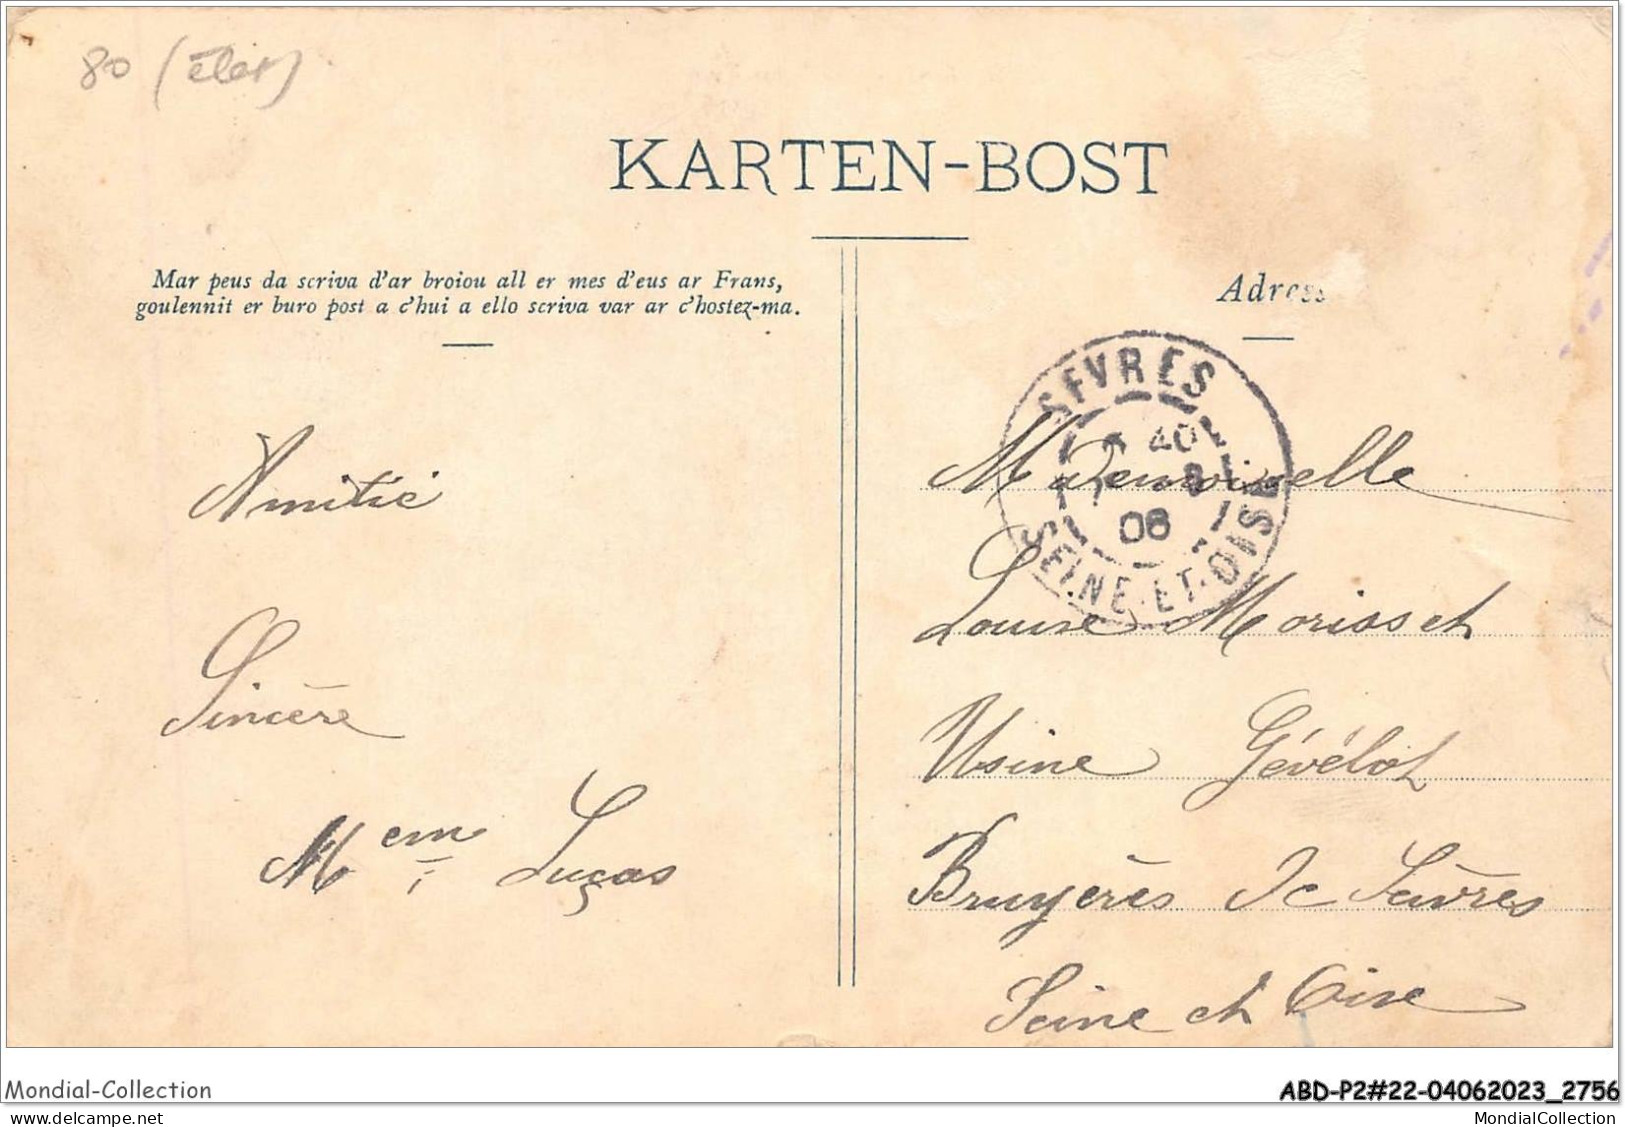 80 (état)
KARTEN-BOST
Mar peus da scriva d'ar broiou all er mes d'eus ar Frans,
goulennit er buro post a c'hui a ello scriva var ar c'hostez-ma.
Adress
SEVRES
AOU
08
SEINE-ET-OISE
Amitié
Sincère
Mem Lucas
Mademoiselle
Louise Morisset
Usine Gévélot
Bruyères De Sèvres
Seine et Oise
Mondial-Collection
ABD-P2#22-04062023_2756
www.delcampe.net
MondialCollection